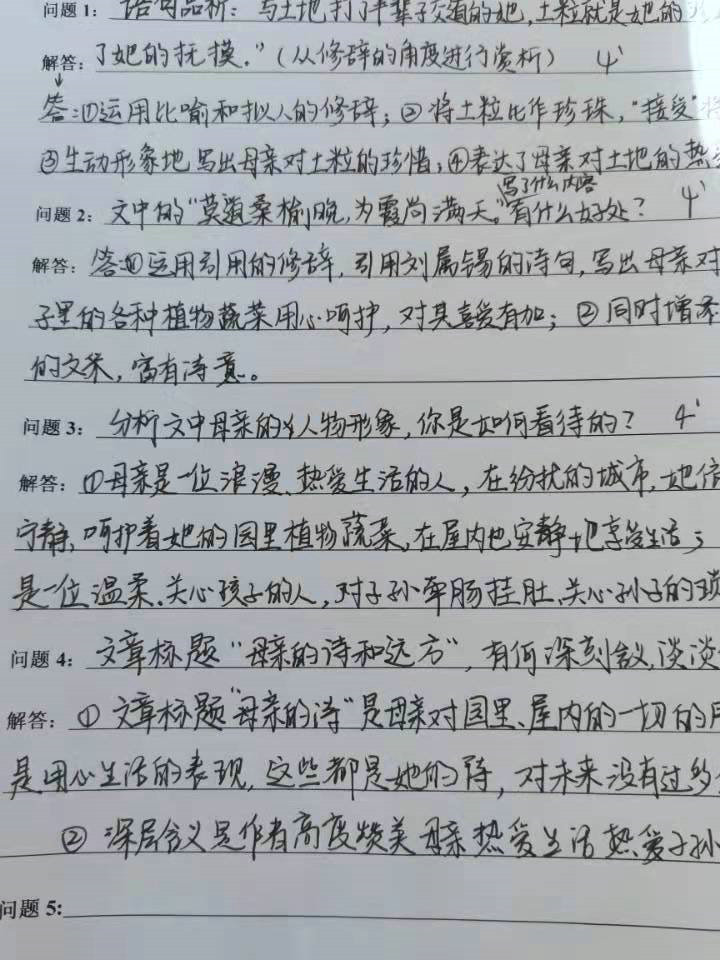 问题 1: 语句品析：与土地打了半辈子交道的她，土粒就是她的
解答: 了她的抚摸。”（从修辞的角度进行赏析） 4'
答：①运用比喻和拟人的修辞；②将土粒比作珍珠，“接受”将
③生动形象地写出母亲对土粒的珍惜，④表达了母亲对土地的热爱
写了什么内容
问题 2: 文中的“莫道桑榆晚，为霞尚满天。”有什么好处？ 4'
解答: 答①运用引用的修辞，引用刘禹锡的诗句，写出母亲对
子里的各种植物蔬菜用心呵护，对其喜爱有加；②同时增添
的文采，富有诗意。
问题 3: 分析文中母亲的人物形象，你是如何看待的？ 4'
解答: ①母亲是一位浪漫、热爱生活的人，在纷扰的城市，她
宁静，呵护着她的园里植物蔬菜，在屋内也安静地享受生活；
是一位温柔、关心孩子的人，对子孙牵肠挂肚、关心孙子的
问题 4: 文章标题“母亲的诗和远方”，有何深刻含义，谈谈
解答: ①文章标题“母亲的诗”是母亲对园里、屋内的一切的用
是用心生活的表现，这些都是她的诗，对未来没有过多
②深层含义是作者高度赞美母亲热爱生活热爱子孙
问题 5: